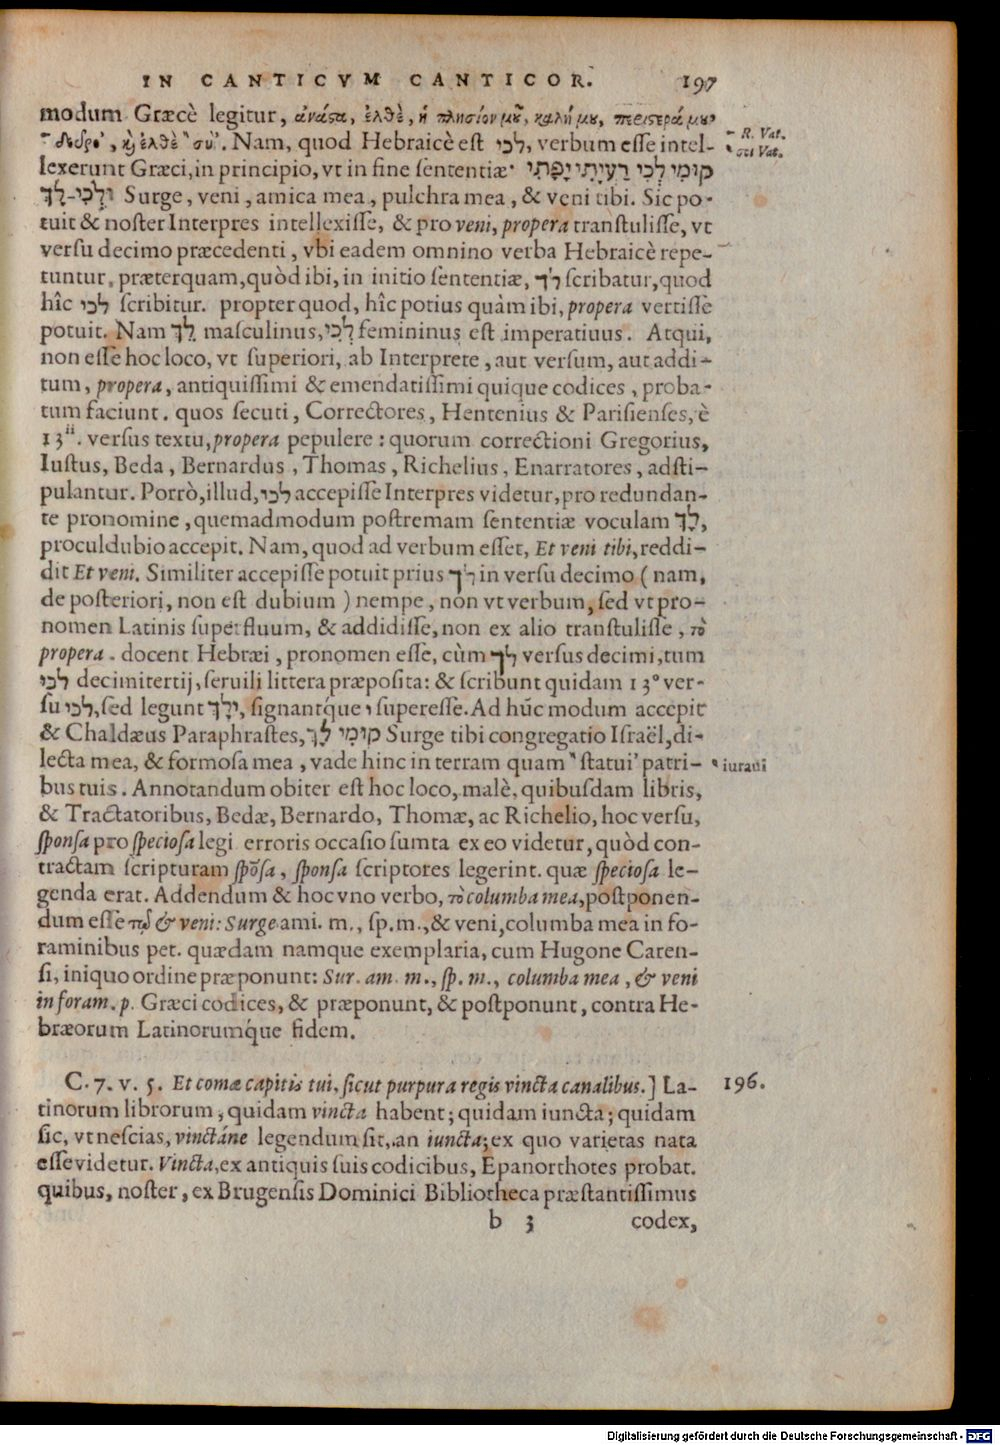 IN CANTICVM CANTICOR. 197
modum Græcè legitur, ἀνάστα, ἐλθὲ, ἡ πλησίον μȣ͂, καλή μȣ, περιστερά μȣ·
δεῦρο, ϗ ἐλθὲ σύ. Nam, quod Hebraicè est לכי, verbum esse intel-
R. Vat.
σεὶ Vat.
lexerunt Græci, in principio, vt in fine sententiæ· קוּמִי לְכִי רַעְיָתִי יָפָתִי
וּלְכִי־לָךְ Surge, veni, amica mea, pulchra mea, & veni tibi. Sic po-
tuit & noster Interpres intellexisse, & pro veni, propera transtulisse, vt
versu decimo præcedenti, vbi eadem omnino verba Hebraicè repe-
tuntur, præterquam, quòd ibi, in initio sententiæ, לך scribatur, quod
hîc לכי scribitur. propter quod, hîc potius quàm ibi, propera vertisse
potuit. Nam לֵךְ masculinus, לְכִי femininus est imperatiuus. Atqui,
non esse hoc loco, vt superiori, ab Interprete, aut versum, aut addi-
tum, propera, antiquissimi & emendatissimi quique codices, proba-
tum faciunt. quos secuti, Correctores, Hentenius & Parisienses, è
13ii. versus textu, propera pepulere: quorum correctioni Gregorius,
Iustus, Beda, Bernardus, Thomas, Richelius, Enarratores, adsti-
pulantur. Porrò, illud, לכי accepisse Interpres videtur, pro redundan-
te pronomine, quemadmodum postremam sententiæ voculam לָךְ,
proculdubio accepit. Nam, quod ad verbum esset, Et veni tibi, reddi-
dit Et veni. Similiter accepisse potuit prius לך in versu decimo (nam,
de posteriori, non est dubium) nempe, non vt verbum, sed vt pro-
nomen Latinis superfluum, & addidisse, non ex alio transtulisse, τὸ
propera. docent Hebræi, pronomen esse, cùm לך versus decimi, tum
לכי decimitertij, seruili littera præposita: & scribunt quidam 13o ver-
su לכי, sed legunt לָךְ, signantq́ue י superesse. Ad hũc modum accepit
& Chaldæus Paraphrastes, קוּמִי לָךְ Surge tibi congregatio Israël, di-
lecta mea, & formosa mea, vade hinc in terram quam statui patri-
iuraui
bus tuis. Annotandum obiter est hoc loco, malè, quibusdam libris,
& Tractatoribus, Bedæ, Bernardo, Thomæ, ac Richelio, hoc versu,
sponsa pro speciosa legi erroris occasio sumta ex eo videtur, quòd con-
tractam scripturam spõsa, sponsa scriptores legerint. quæ speciosa le-
genda erat. Addendum & hoc vno verbo, τὸ columba mea, postponen-
dum esse τῷ & veni: Surge ami. m., sp. m., & veni, columba mea in fo-
raminibus pet. quædam namque exemplaria, cum Hugone Caren-
si, iniquo ordine præponunt: Sur. am. m., sp. m., columba mea, & veni
in foram. p. Græci codices, & præponunt, & postponunt, contra He-
bræorum Latinorumq́ue fidem.
C. 7. v. 5. Et comæ capitis tui, sicut purpura regis vincta canalibus.] La-
196.
tinorum librorum, quidam vincta habent; quidam iuncta; quidam
sic, vt nescias, vinctáne legendum sit, an iuncta; ex quo varietas nata
esse videtur. Vincta, ex antiquis suis codicibus, Epanorthotes probat.
quibus, noster, ex Brugensis Dominici Bibliotheca præstantissimus
b 3 codex,
Digitalisierung gefördert durch die Deutsche Forschungsgemeinschaft - DFG